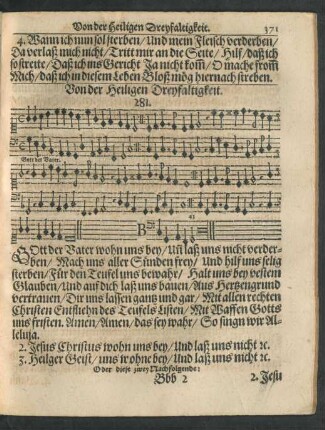 Von der Heiligen Dreyfaltigkeit. 371
4. Wann ich nun sol sterben/ Und mein Fleisch verderben/
Da verlaß mich nicht/ Tritt mir an die Seite/ Hilf/ daß ich
so streite/ Daß ich ins Gericht Ja nicht kom̃/ O mache from̃
Mich/ daß ich in diesem Leben Bloß mög hiernach streben.
Von der Heiligen Dreyfaltigkeit.
281.
Gott der Vater.
B.
GOtt der Vater wohn uns bey/ Uñ laß uns nicht verder-
ben/ Mach uns aller Sünden frey/ Und hilf uns selig
sterben/ Für den Teufel uns bewahr/ Halt uns bey vestem
Glauben/ Und auf dich laß uns bauen/ Aus Hertzengrund
vertrauen/ Dir uns lassen gantz und gar/ Mit allen rechten
Christen Entfliehn des Teufels Listen/ Mit Waffen Gotts
uns fristen. Amen/ Amen/ das sey wahr/ So singn wir Al-
leluja.
2. Jesus Christus wohn uns bey/ Und laß uns nicht ꝛc.
3. Heilger Geist/ uns wohne bey/ Und laß uns nicht ꝛc.
Oder diese zwey Nachfolgende:
Bbb 2 2. Jesu